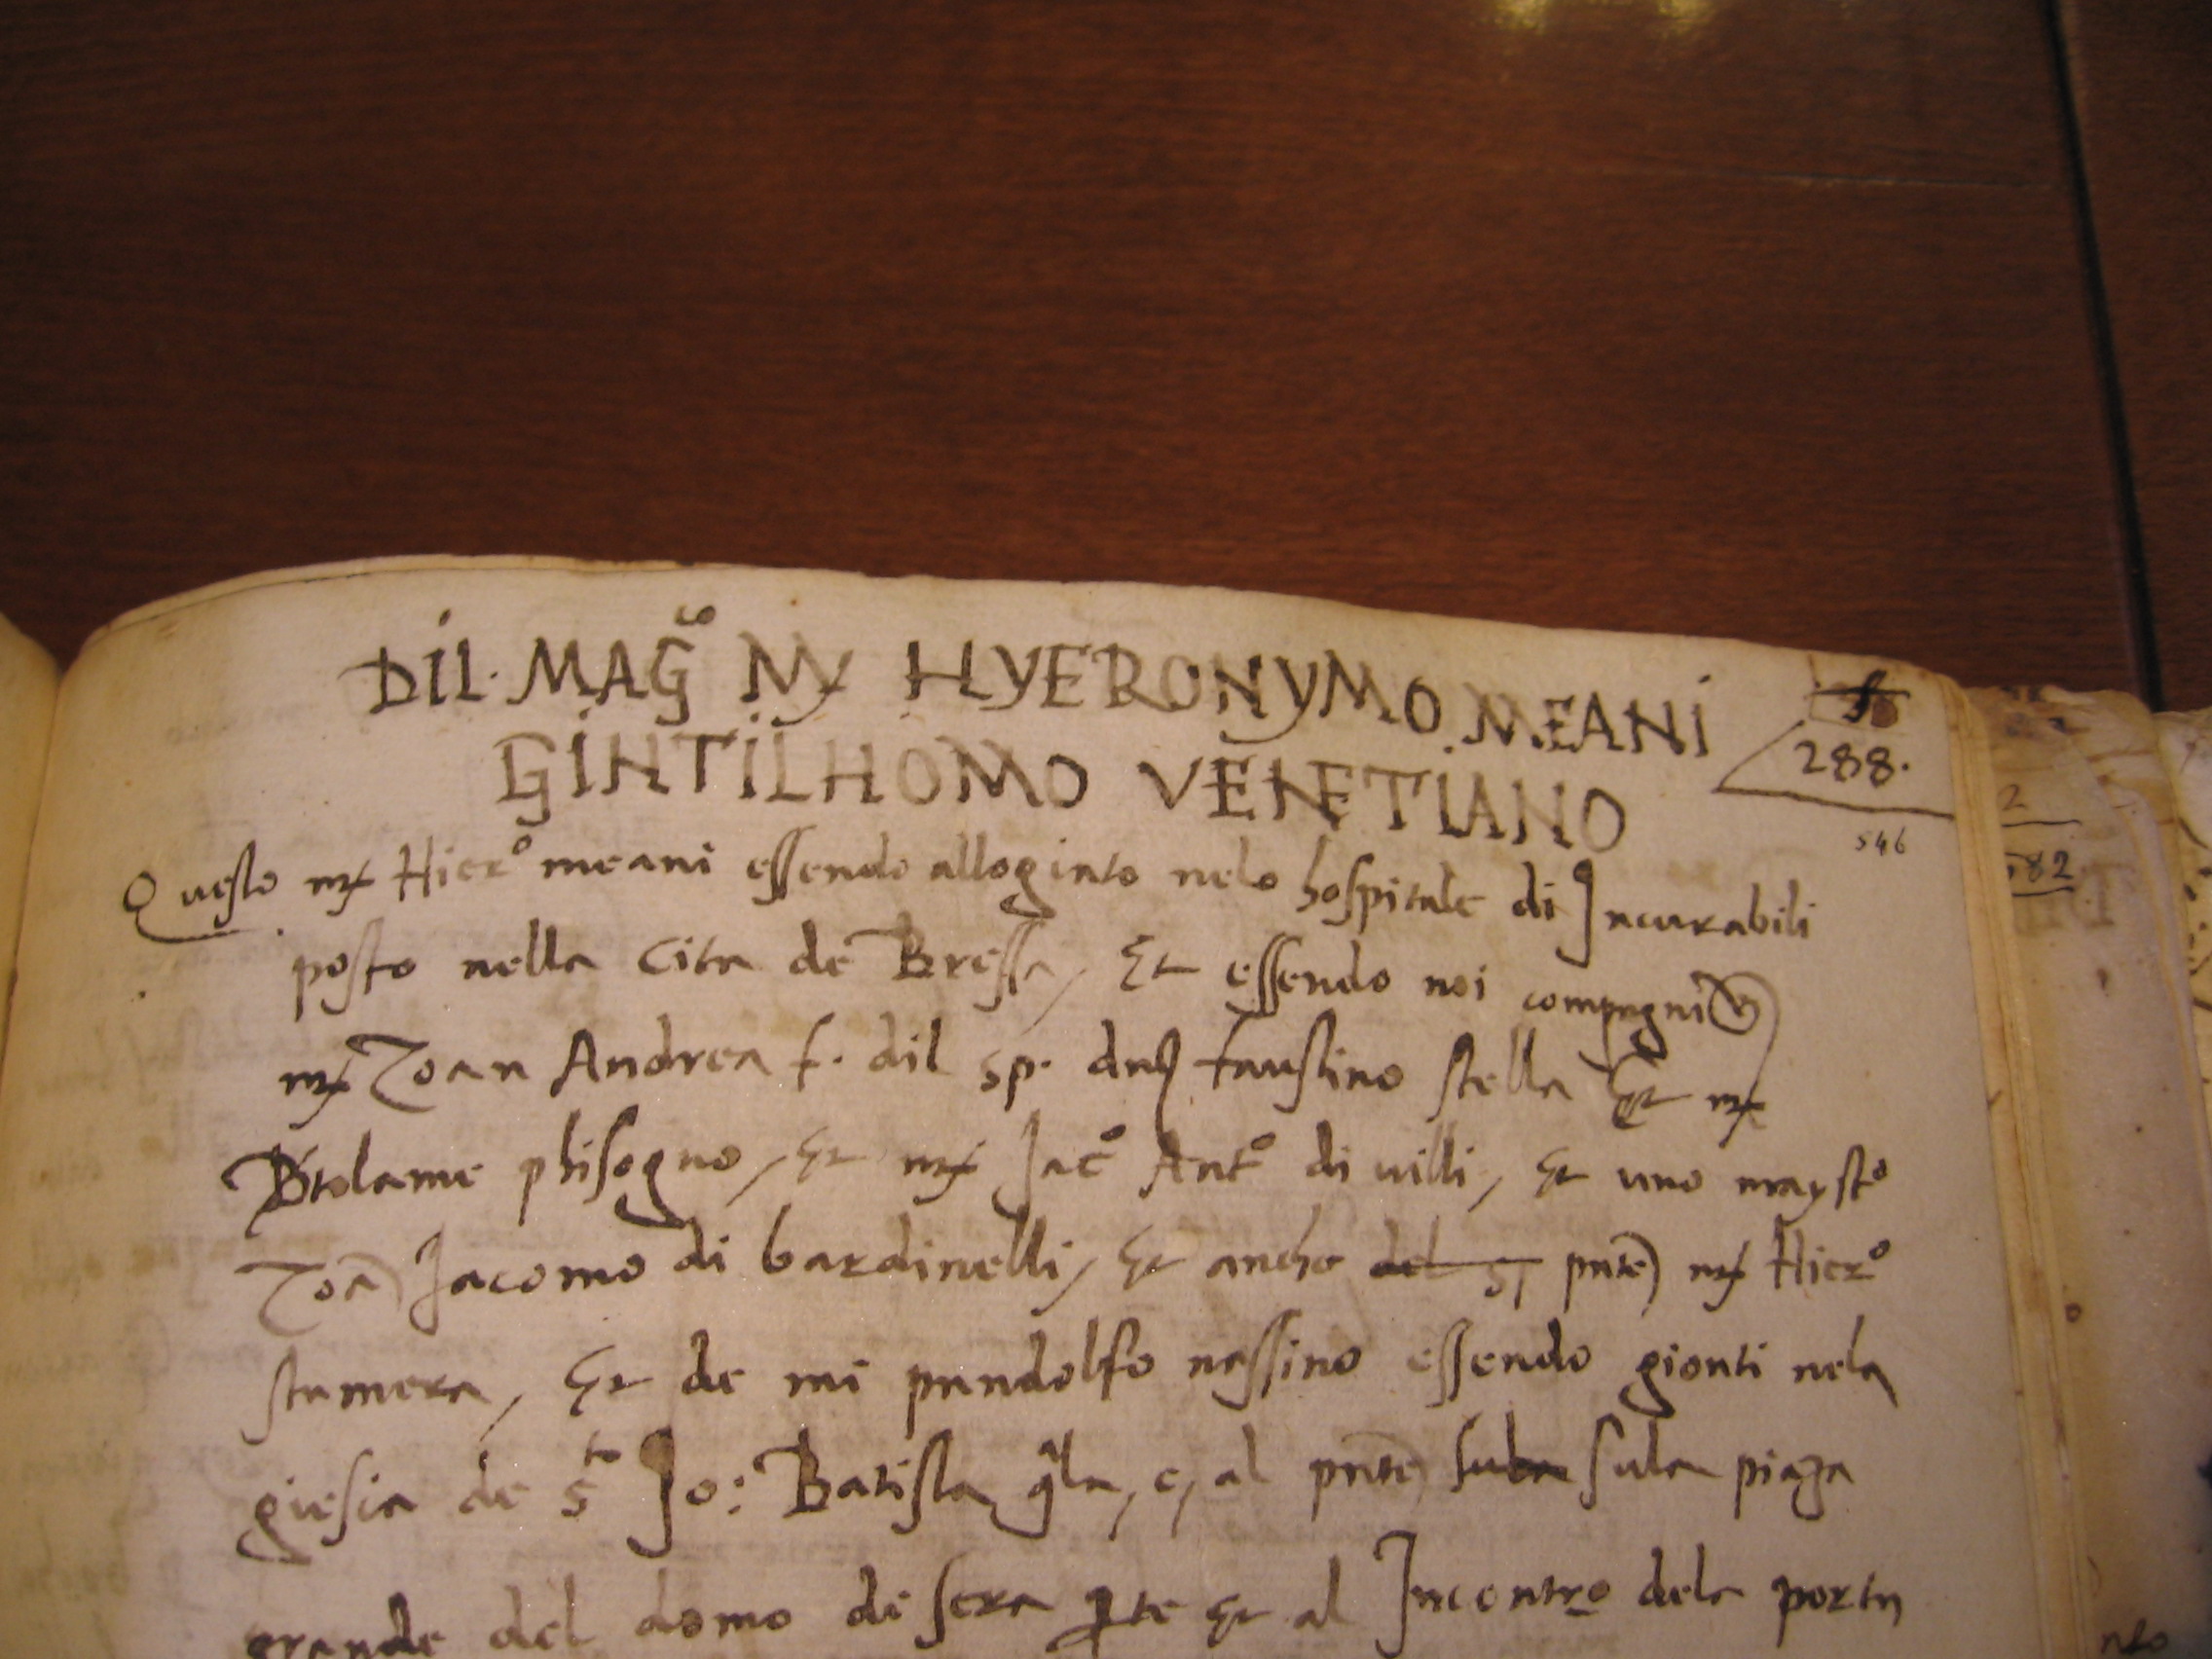 DIL. MAG^co My HYERONYMO. MEANI
GINTILHOMO VENETIANO
288.
546
Questo mx Hier° meani essendo alloginto nelo hospitale di Incurabili
posto nella Cita de Bressa, Et essendo noi compagni
mx Zoan Andrea f. dil sp. dns faustino stella Et mx
Btolame phisogno, Et mx Jac° Ant° di uilli, Et uno mayst°
Zoā Jacomo di bardinelli, Et ancho del sp pnte mx Hier°
stamera, Et de mi pandolfo nassino essendo gionti nela
giesia de S^to Jo: Batista qla, e, al pnte sula sula piaza
grande del domo de sera pte Et al Incontro dela porta
2
182